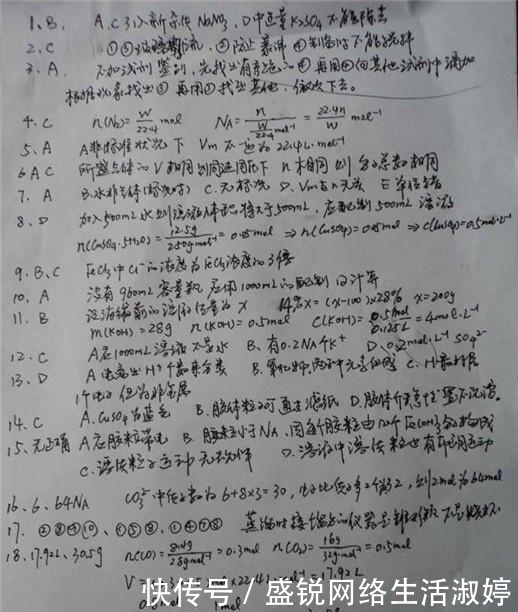 1、B. A.C引入新杂质NaNO₃, D中过量K₂SO₄不能除去
2、C ①⑤玻璃棒引流, ②防止暴沸 ④制备时不能搅拌
3、A. 不加试剂鉴别,先找出有颜色的③再用③向其他试剂中滴加
根据现象找出②再用②找出其他,依次下去。
4、C n(N₂)= W/22.4 mol NA= n / (W/22.4 mol) = 22.4n/W mol⁻¹
5、A A非标准状况下 Vm不一定为22.4L·mol⁻¹
6 AC 所盛气体的V相同则同温同压下 n相同则分子总数相同
7、A B.水非气体(标况时) C.无标况 D、Vm与n无关 E单位错
8、D 加入500mL水则溶液体积将大于500mL,应配制500mL溶液
n(CuSO₄·5H₂O)= 12.5g/250g·mol⁻¹ =0.05mol ⇒ n(CuSO₄)=0.05mol ⇒ c(CuSO₄)=0.5mol·L⁻¹
9、B、C FeCl₃中Cl⁻的浓度为FeCl₃浓度的3倍
10、A 没有950mL容量瓶应用1000mL的配制且计算
11、B 设浓缩前的溶液质量为x 14%x=(x-100)×28% x=200g
m(KOH)=28g n(KOH)=0.5mol C(KOH)= 0.5mol/0.125L =4mol·L⁻¹
12、C A应1000mL溶液不是水 B、有0.2NA个K⁺ D、0.2mol·L⁻¹ SO₄²⁻
13、D A电离出H⁺个数来分类
14、C A、CuSO₄为蓝色 B、胶体粒子可通过滤纸
15、无正确 A应胶粒带电 B、胶粒小于NA,因每个胶粒由几个Fe(OH)₃分子构成
C、溶液粒子运动无规律 D、溶液中溶质粒也有布朗运动
16、6、64NA CO₃²⁻中质子数为6+8×3=30,电子比质子多2个为32,则2mol为64mol
17、②③⑨⑩、①⑤⑧、①④⑦⑧ 蒸馏时接馏分的仪器是锥形瓶不是烧杯
18、17.92L、30.5g n(CO)= 8.4g/28g·mol⁻¹ =0.3mol n(O₂)= 16g/32g·mol⁻¹ =0.5mol
快传号/盛锐网络生活淑婷